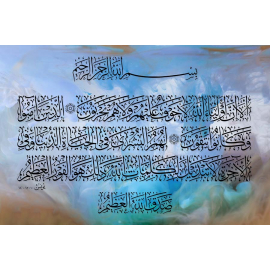 بسم الله الرحمن الرحيم
ألا إن أولياء الله لا خوف عليهم ولا هم يحزنون الذين آمنوا
وكانوا يتقون لهم البشرى في الحياة الدنيا وفي
الآخرة لا تبديل لكلمات الله ذلك هو الفوز العظيم
صدق الله العظيم